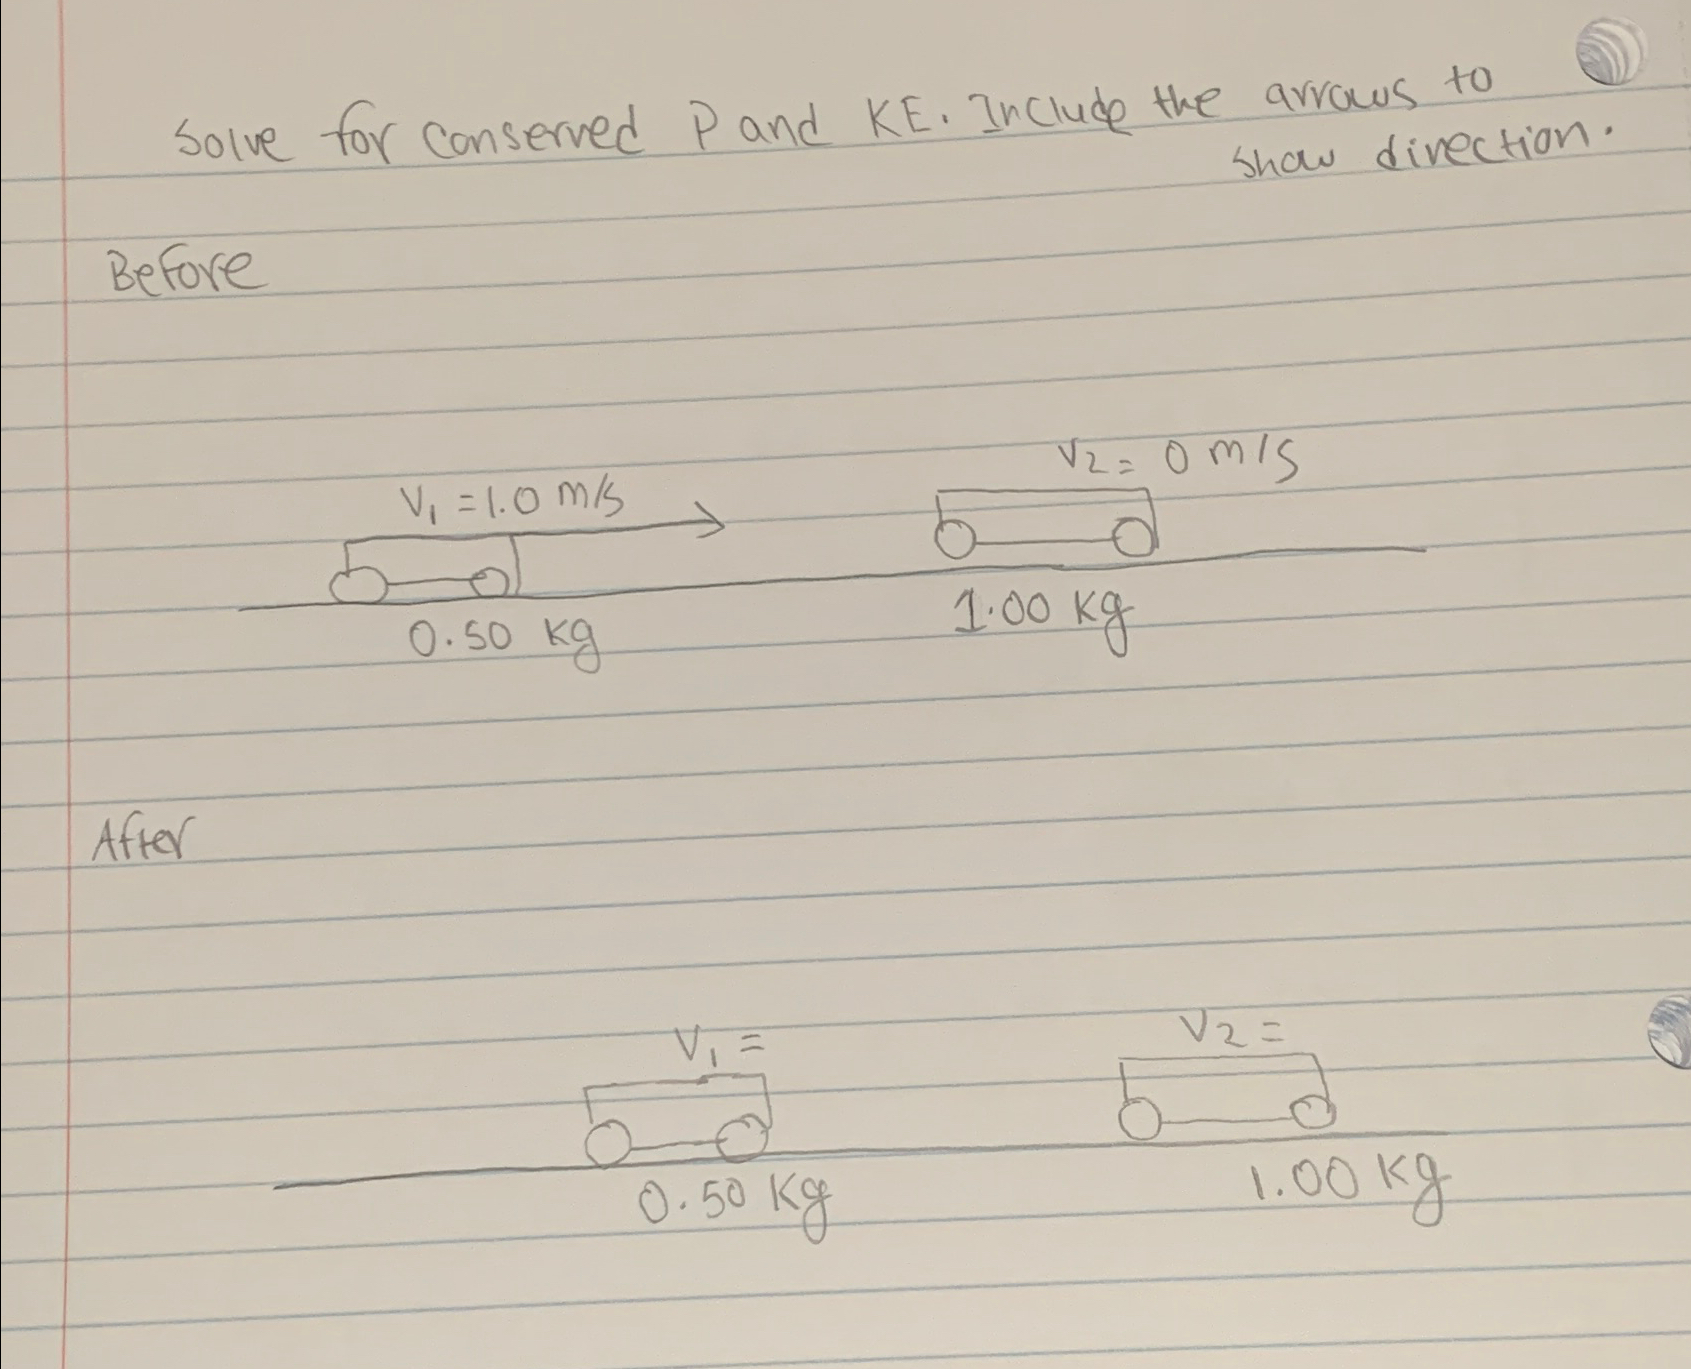 Solve for conserved P and KE. Include the arrows to
show direction.
Before
V₂ = 0 m/s
V₁ = 1.0 m/s
0.50 kg
1.00 kg
After
V₁ =
V₂ =
0.50 kg
1.00 kg